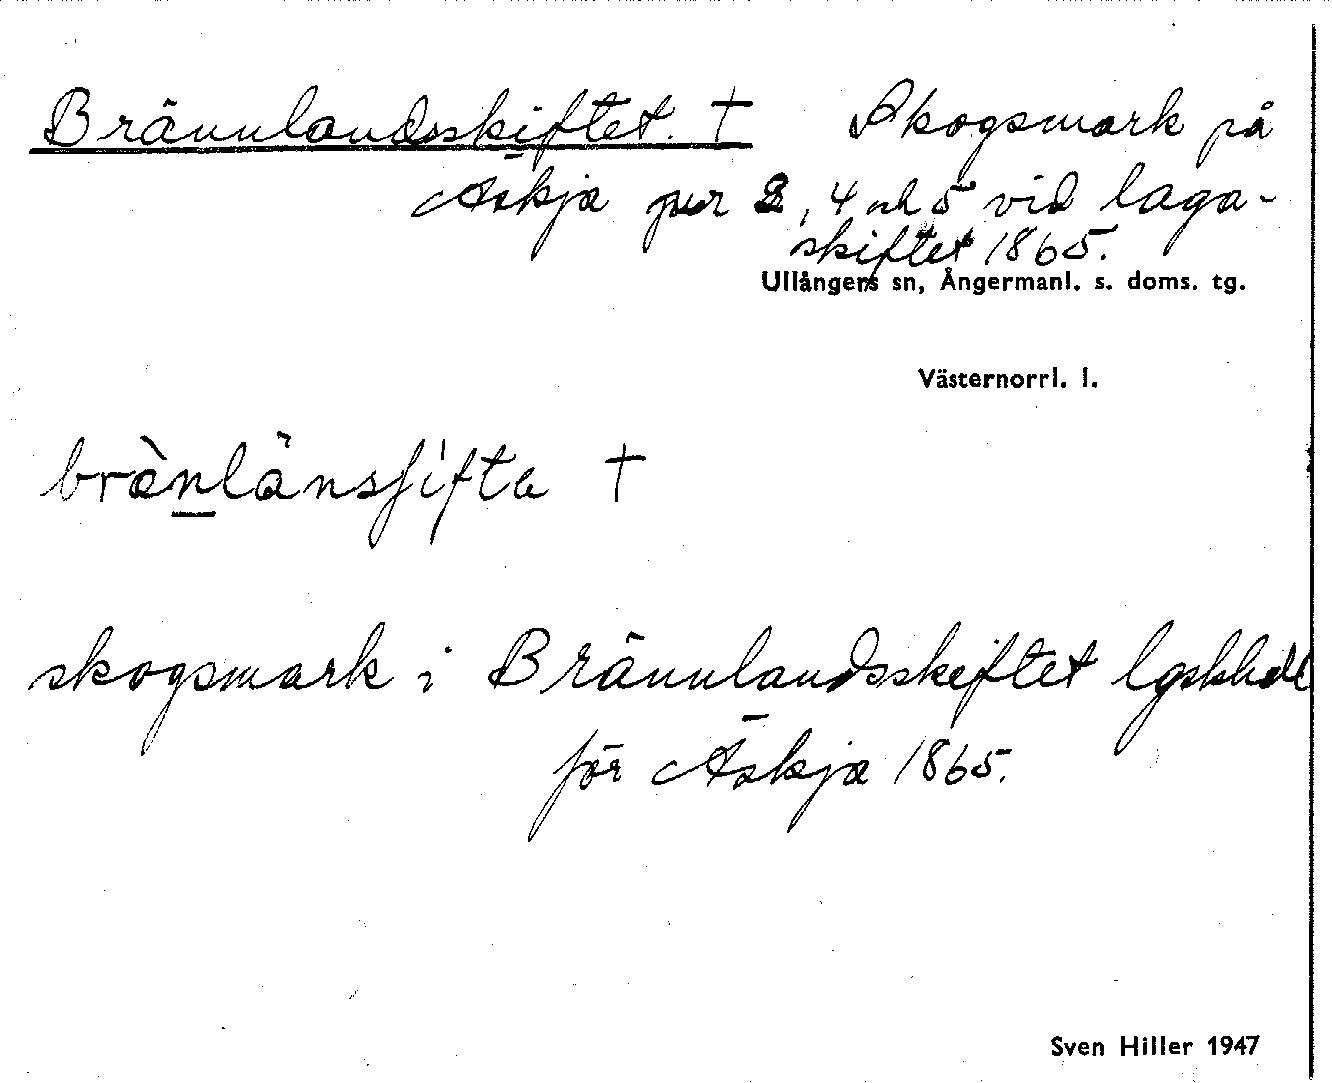 Brännlandsskiftet. † Skogsmark på
Äskja pur 2, 4 och 5 vid laga-
skiftet 1865.
Ullångers sn, Ångermanl. s. doms. tg.
Västernorrl. l.
†
skogsmark i Brännlandsskeftet
för Äskja 1865.
Sven Hiller 1947